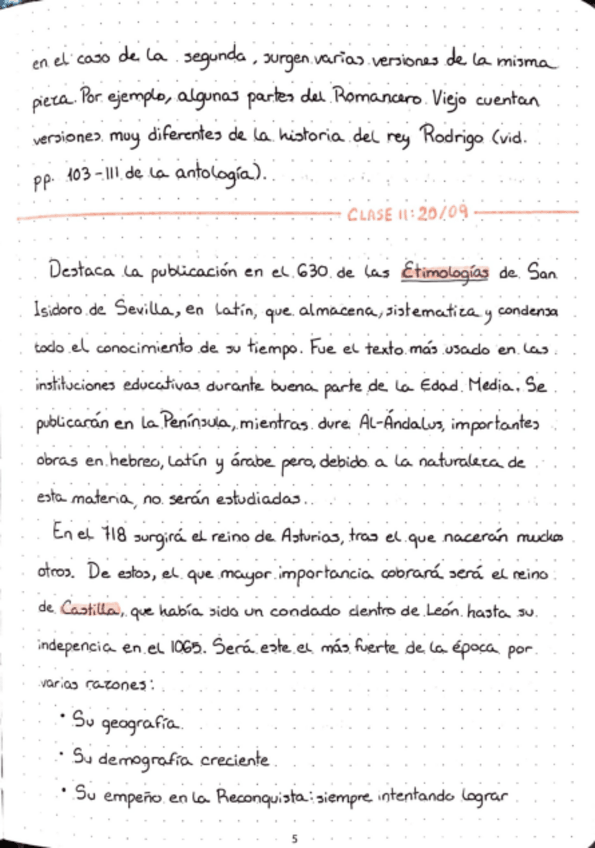 en el caso de la segunda, surgen varias versiones de la misma
pieza. Por ejemplo, algunas partes del Romancero Viejo cuentan
versiones muy diferentes de la historia del rey Rodrigo (vid.
pp. 103-111 de la antología).
CLASE 11: 20/09
Destaca la publicación en el 630 de las Etimologías de San
Isidoro de Sevilla, en latín, que almacena, sistematiza y condensa
todo el conocimiento de su tiempo. Fue el texto más usado en las
instituciones educativas durante buena parte de la Edad Media. Se
publicarán en la Península, mientras dure Al-Ándalus, importantes
obras en hebreo, latín y árabe pero, debido a la naturaleza de
esta materia, no serán estudiadas.
En el 718 surgirá el reino de Asturias, tras el que nacerán muchos
otros. De estos, el que mayor importancia cobrará será el reino
de Castilla, que había sido un condado dentro de León hasta su
indepencia en el 1065. Será este el más fuerte de la época por
varias razones:
· Su geografía.
· Su demografía creciente
· Su empeño en la Reconquista: siempre intentando lograr
5